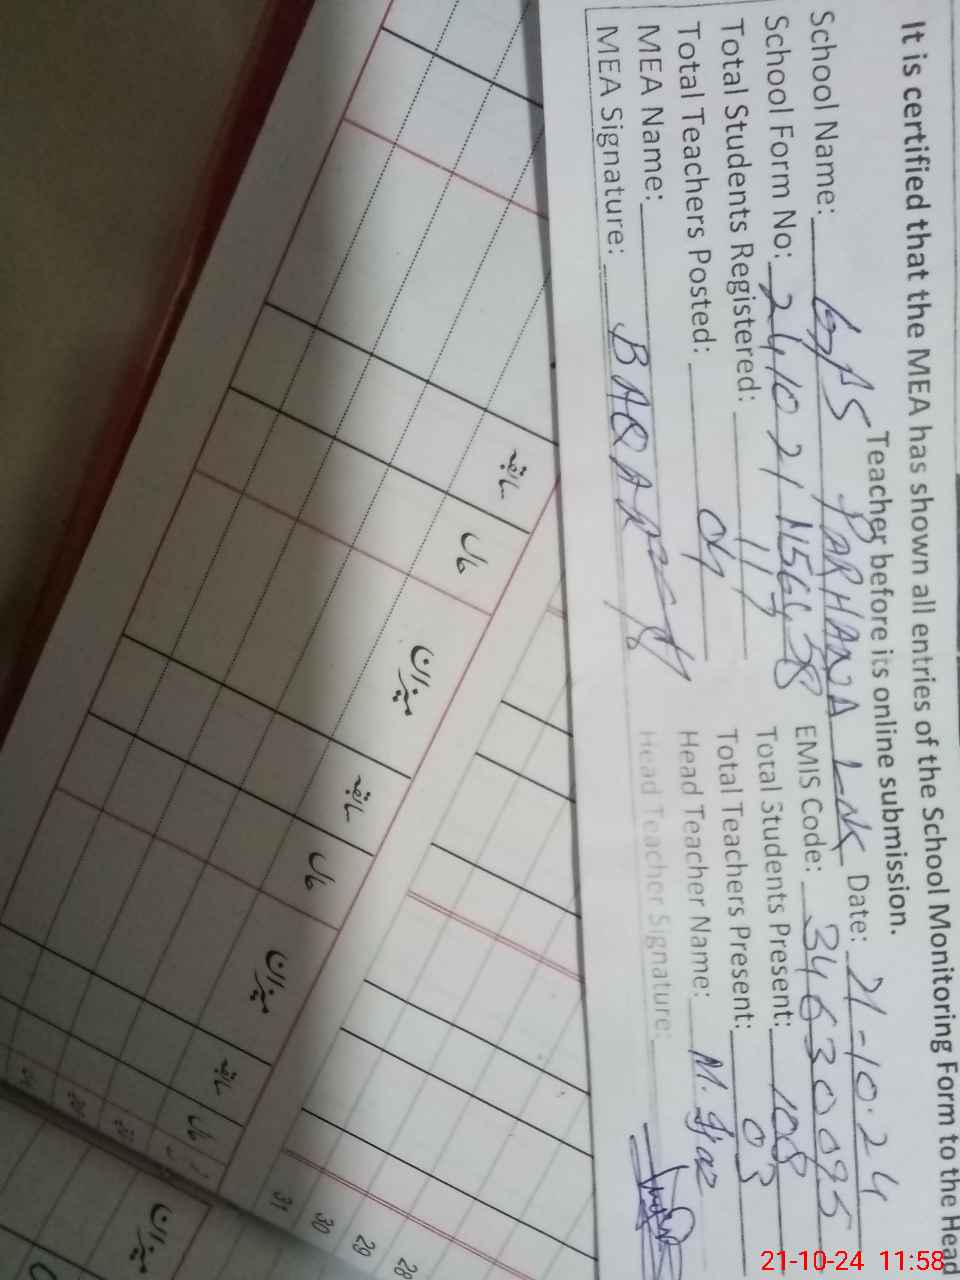 It is certified that the MEA has shown all entries of the School Monitoring Form to the Head
Teacher before its online submission.
School Name: GPS FARHANA LNK Date: 21-10-24
School Form No: 2410211156438 EMIS Code: 34630095
Total Students Registered: 117 Total Students Present: 108
Total Teachers Posted: 04 Total Teachers Present: 03
MEA Name: BAQAR Head Teacher Name: M.
MEA Signature: Head Teacher Signature:
سابقہ
حال
میزان
سابقہ
حال
میزان
سابقہ
حال
میزان
31
30
29
28
21-10-24 11:58